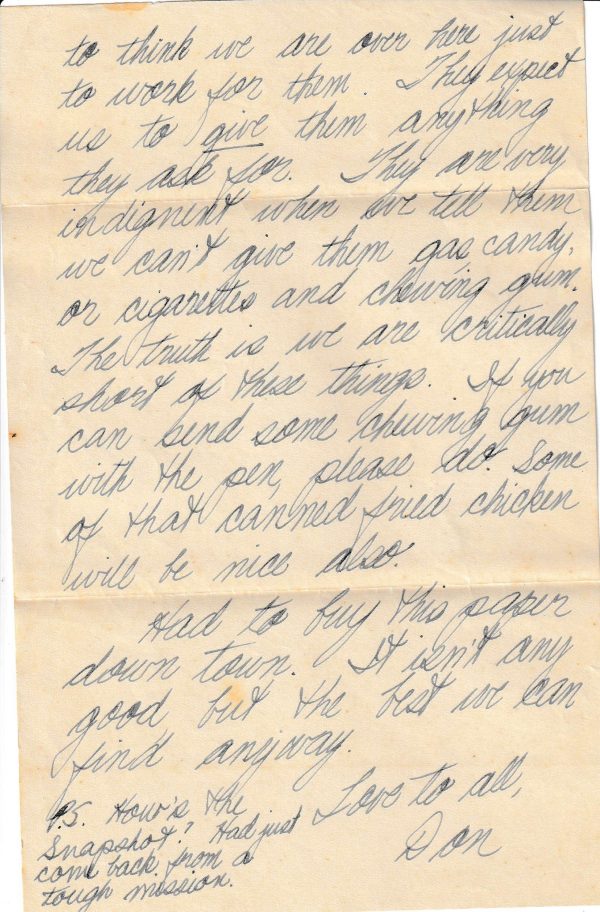 to think we are over here just
to work for them. They expect
us to give them anything
they ask for. They are very
indignent when we tell them
we can't give them gas, candy,
or cigarettes and chewing gum.
The truth is we are critically
short of these things. If you
can send some chewing gum
with the pen, please do. Some
of that canned fried chicken
will be nice also.
Had to buy this paper
down town. It isn't any
good but the best we can
find anyway.
Love to all,
Don
P.S. How's the
snapshot? Had just
come back from a
tough mission.